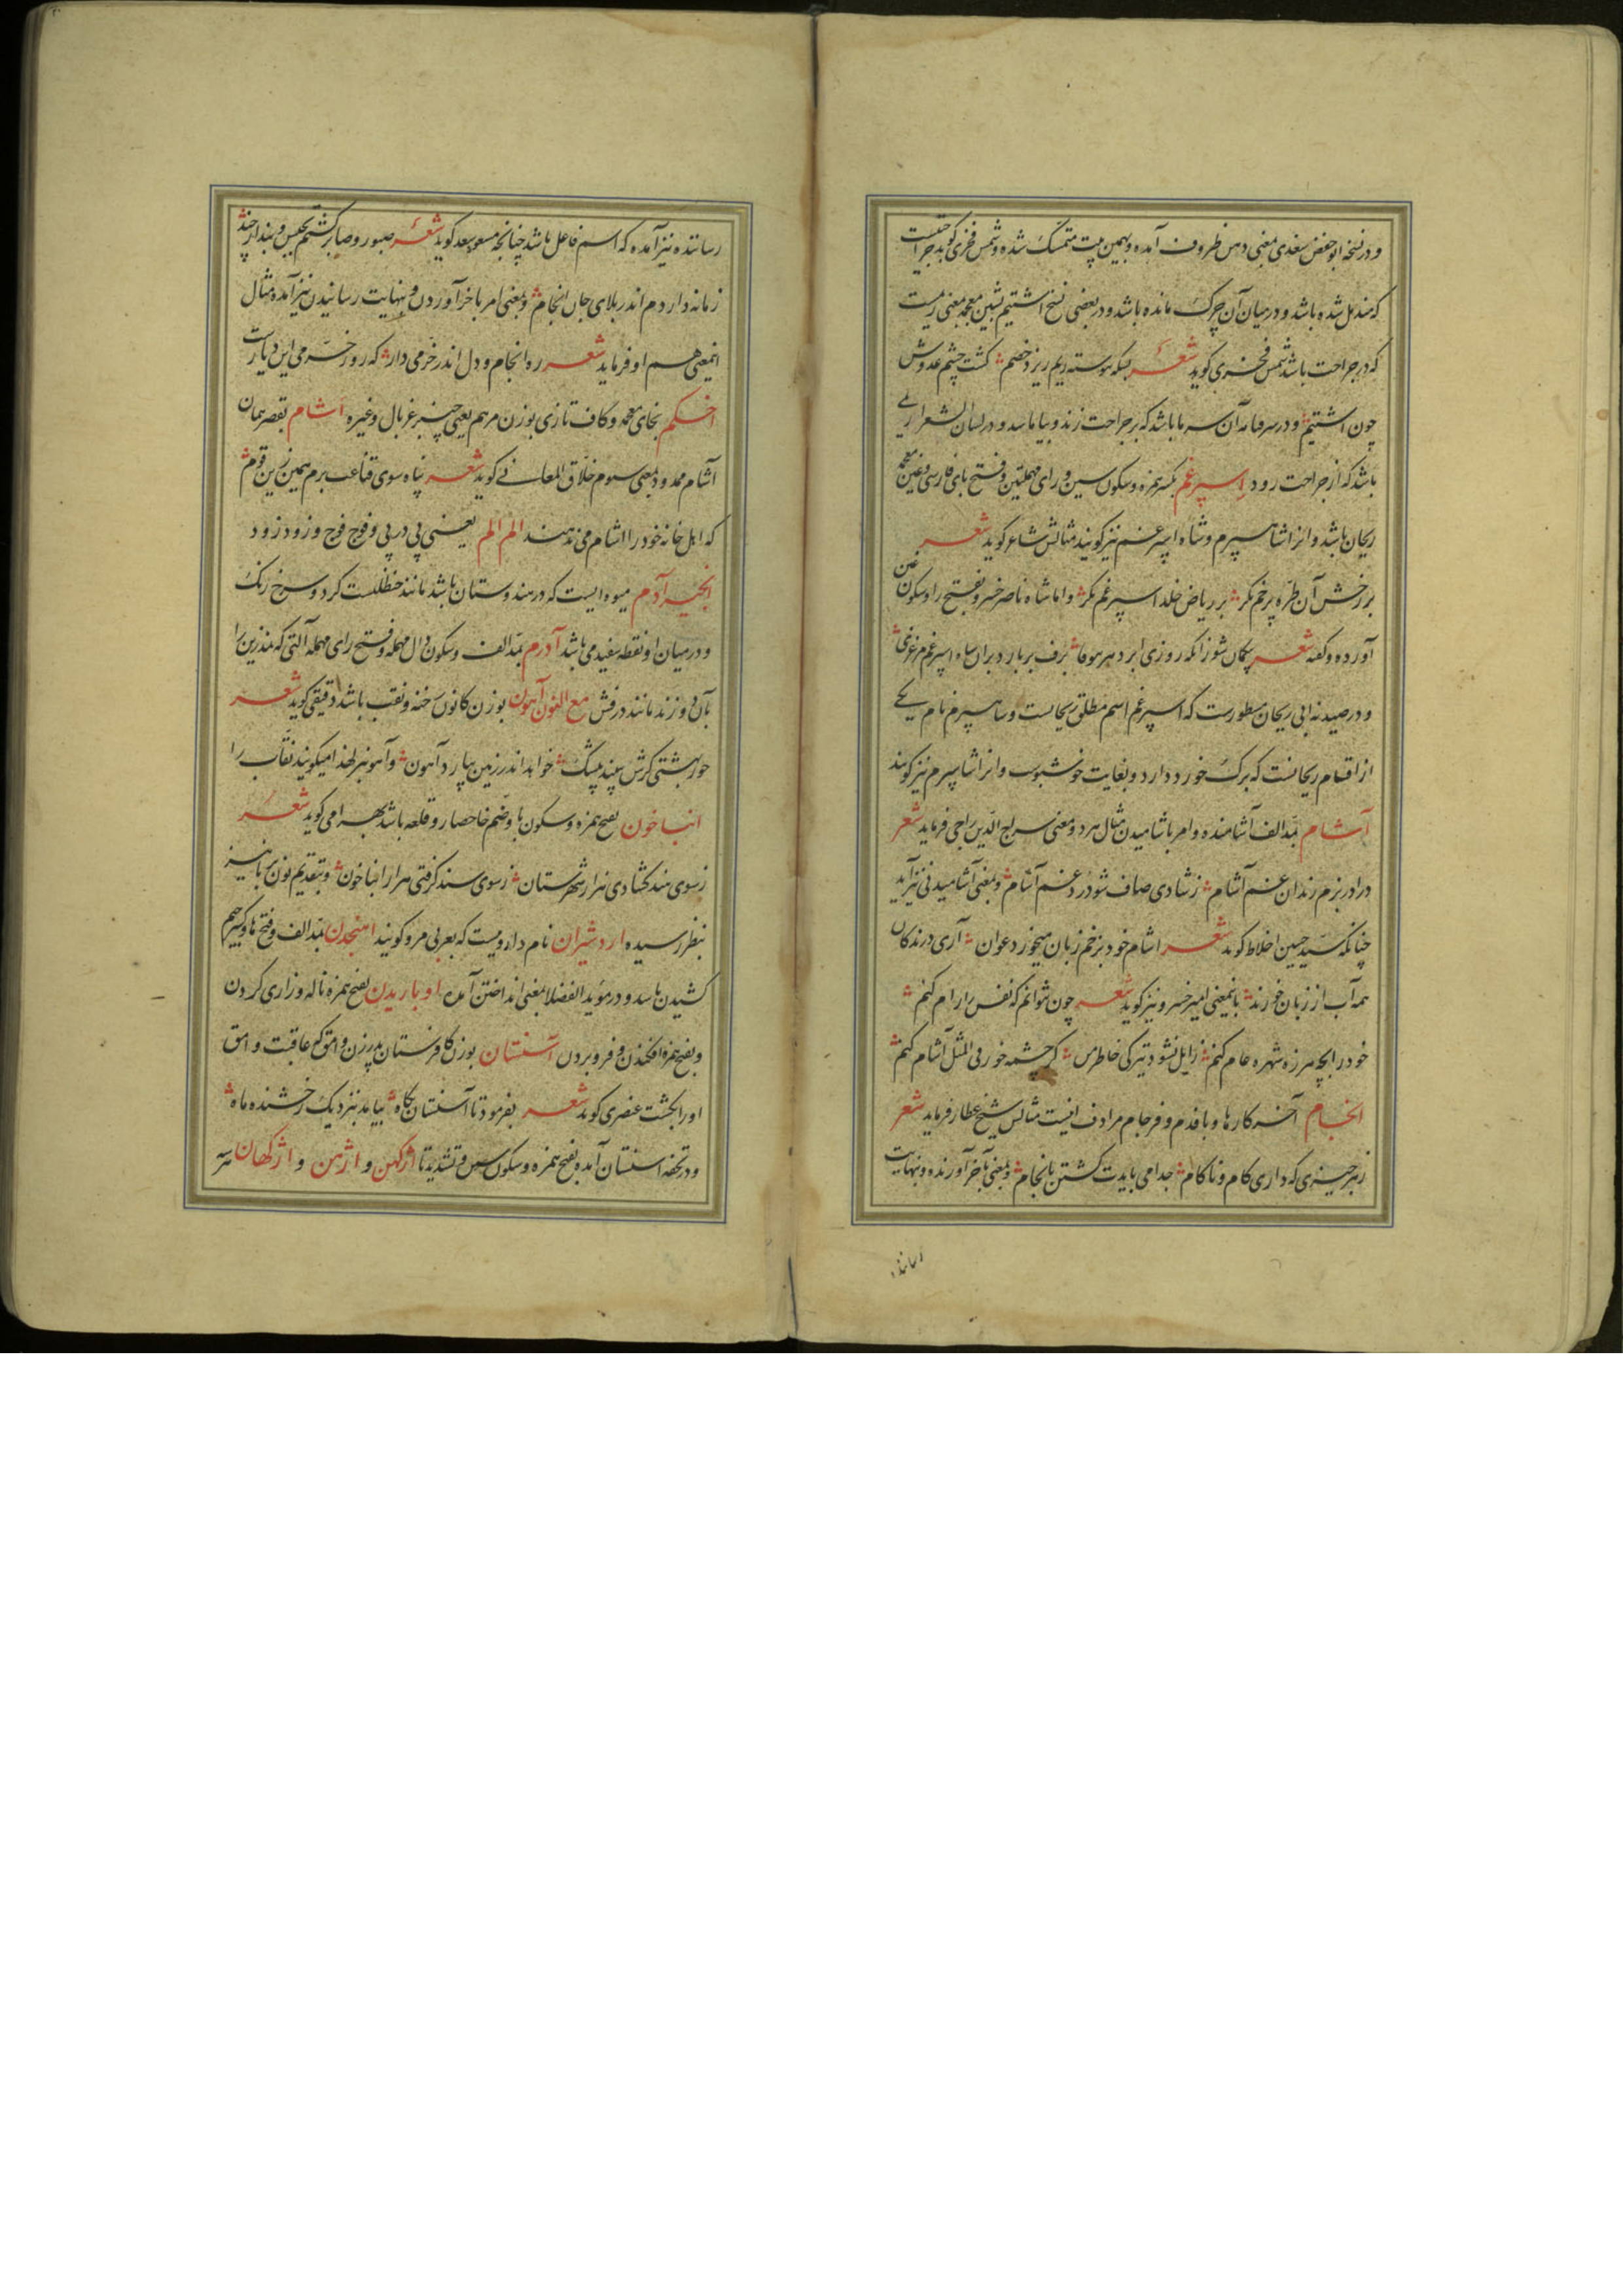 و در نسخه ابو حفص سغدی بمعنی دهن ظروف آمده و بهمین بیت متمسک شده و شمس فخری گوید جراحتیست
که مندمل شده باشد و در میان آن چرک مانده باشد و در بعضی نسخ اشتیم بشین معجمه بمعنی ریمست
که در جراحت باشد شمس فخری گوید شعر بسکه پیوسته ریم ریزد خصم گشت چشم عدوش
چون اشتیم و در سرفنامه آن سرما باشد که بر جراحت زند و بیاماسد و در لسان الشعرا ریمی
باشد که از جراحت رود اسپرغم بکسر همزه و سکون سین و رای مهملتین و فتح بای فارسی و غین معجمه
ریحان باشد و انرا شاهسپرم و شاه اسپرغم نیز گویند مثالش شاعر گوید شعر
بر رخش آن طره پرخم نگر بر ریاض خلد اسپرغم نگر و اما شاه ناصر خسرو بفتح را و سکون غین
آورده و گفته شعر
و در صیدنه ابی ریحان مسطورست که اسپرغم اسم مطلق ریحانست و شاهسپرم نام یکی
از اقسام ریحانست که برک خورد دارد و بغایت خوشبوست و انرا شاسپرم نیز گویند
آشام بمد الف آشامنده و امر باشامیدن مثال هر دو معنی سراج الدین راجی فرماید شعر
درا در بزم رندان غم آشام ز شادی صاف شو در دغم آشام و بمعنی آشامیدنی نیز آید
چنانکه سید حسین اخلاط گوید شعر اشام خود بزخم زبان میخورد عوان آری درندکان
همه آب از زبان خورند باینمعنی امیر خسرو نیز گوید شعر چون نتوانم که نفس را رام کنم
خود را بچه هرزه شهره عام کنم زایل نشود تیرکی خاطر من گر چشمه خور فی المثل آشام کنم
انجام آخر کارها و بافدم و فرجام مرادف اینست مثالش شیخ عطار فرماید شعر
ز هر چیزی که داری کام و ناکام جدا می بایدت گشتن بانجام و بمعنی بآخر آورنده و بنهایت
رساننده
رساننده نیز آمده که اسم فاعل باشد چنانچه مسعود سعد گوید شعر صبور و صابر گشتم بحبس و بند از چند
زمانه دارد م اندر بلای جان انجام و بمعنی امر باخر آوردن و بنهایت رسانیدن نیز آمده مثال
اینمعنی هم او فرماید شعر ره انجام و دل اندر خرمی دار که روز خرمی این دیارت
اخکم بخای معجمه و کاف تازی بوزن مرهم یعنی چنبر غربال و غیره اشام بقصر همان
آشام ممدود بمعنی سوم خلاق المعانی گوید شعر پناه سوی قناعت برم همین زین قوم
که اهل خانه خود را اشام می ندهند الم الم یعنی پی در پی و فوج فوج و زود زود
انجیر آدم میوه ایست که در هندوستان باشد مانند حنظلست گرد و سرخ رنک
و در میان او نقطه سفید می باشد آدرم بمد الف و سکون دال مهمله و فتح رای مهمله آلتی که نمدزین را
بآن دوزند مانند درفش مع النون آهون بوزن کانون رخنه و نقب باشد دقیقی گوید شعر
حور بهشتی گرش ببیند بیشک خواهد اندر زمین بیارد آهون و آهونبر لهذا میگویند نقاب را
انباخون بفتح همزه و سکون با و ضم خا حصار و قلعه باشد بهرامی گوید شعر
ز سوی هند گشادی هزار شهرستان ز سوی سند گرفتی هزار انباخون و بتقدیم نون بر با نیز
بنظر رسیده اردشیران نام داروییست که بعربی مرو گویند امنجدن بمد الف و فتح ها و کسر جیم
کشیدن باشد و در موید الفضلا بمعنی انداختن آمده اوباریدن بفتح همزه ناله و زاری کردن
و بفتح همزه افکندن و فرو بردن آستنان بوزن کافرستان پدر زن وامق که عاقبت وامق
او را بکشت عنصری گوید شعر بفرمود تا آسنستان پگاه بیامد بنزدیک رخشنده ماه
و در تحفه استنان آمده بفتح همزه و سکون سین و تشدید تا اژکهن و اژهن و اژکهان هر سه